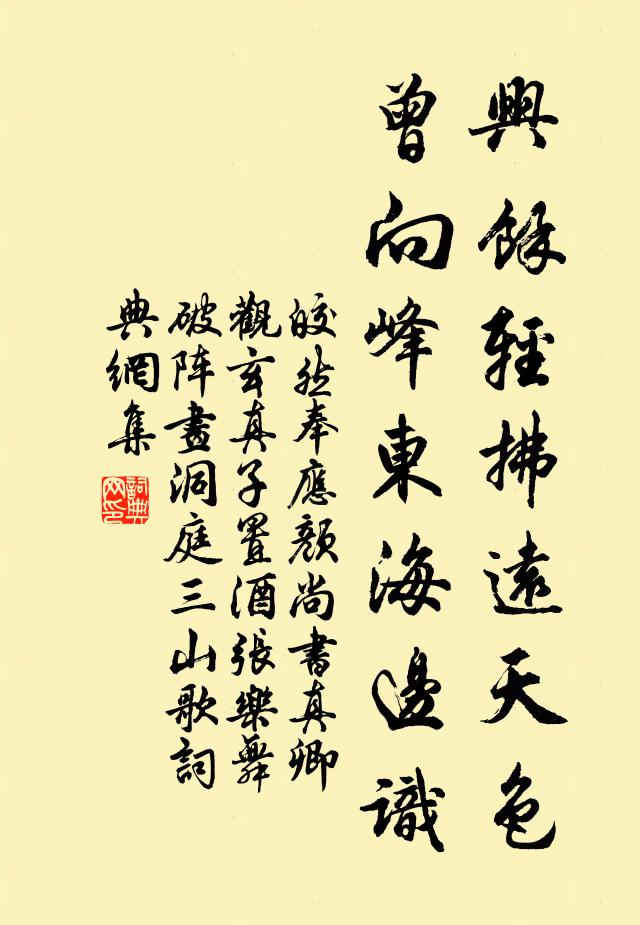 興餘輕拂遠天色
曾向峰東海邊識
皎然奉應顏尚書真卿
觀玄真子置酒張樂舞
破阵畫洞庭三山歌詞
典網集
詞典网印